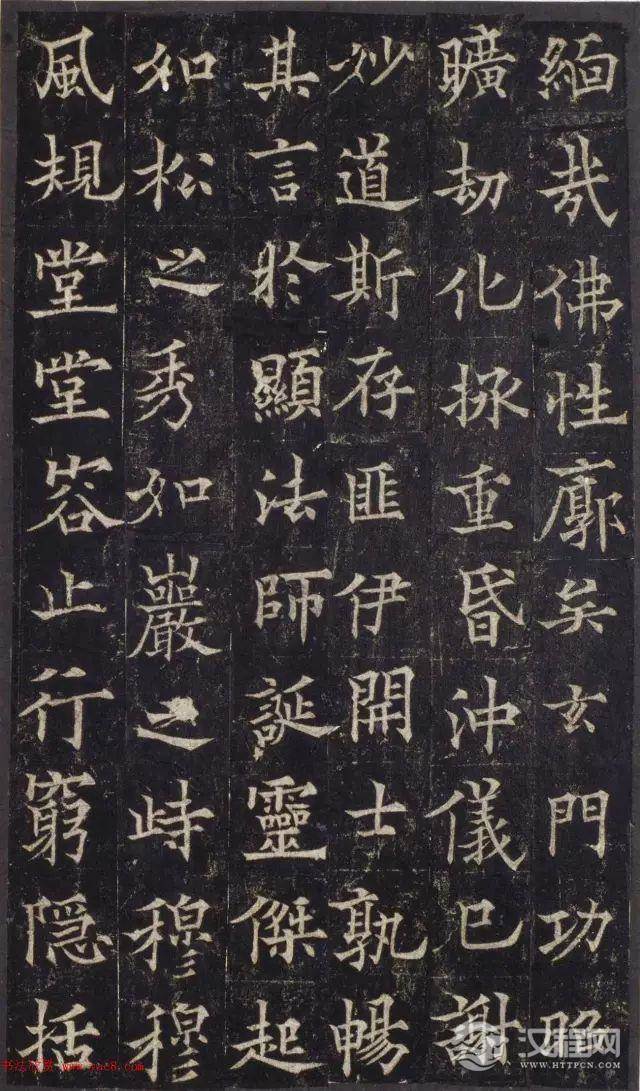 緬哉佛性廓矣玄門功昭
曠劫化拯重昏沖儀已謝
妙道斯存匪伊開士孰暢
其言於顯法師誕靈傑起
如松之秀如巖之峙穆穆
風規堂堂容止行窮隱括
书法欣赏 www.yac8.com
汉程网
WWW.HTTPCN.COM